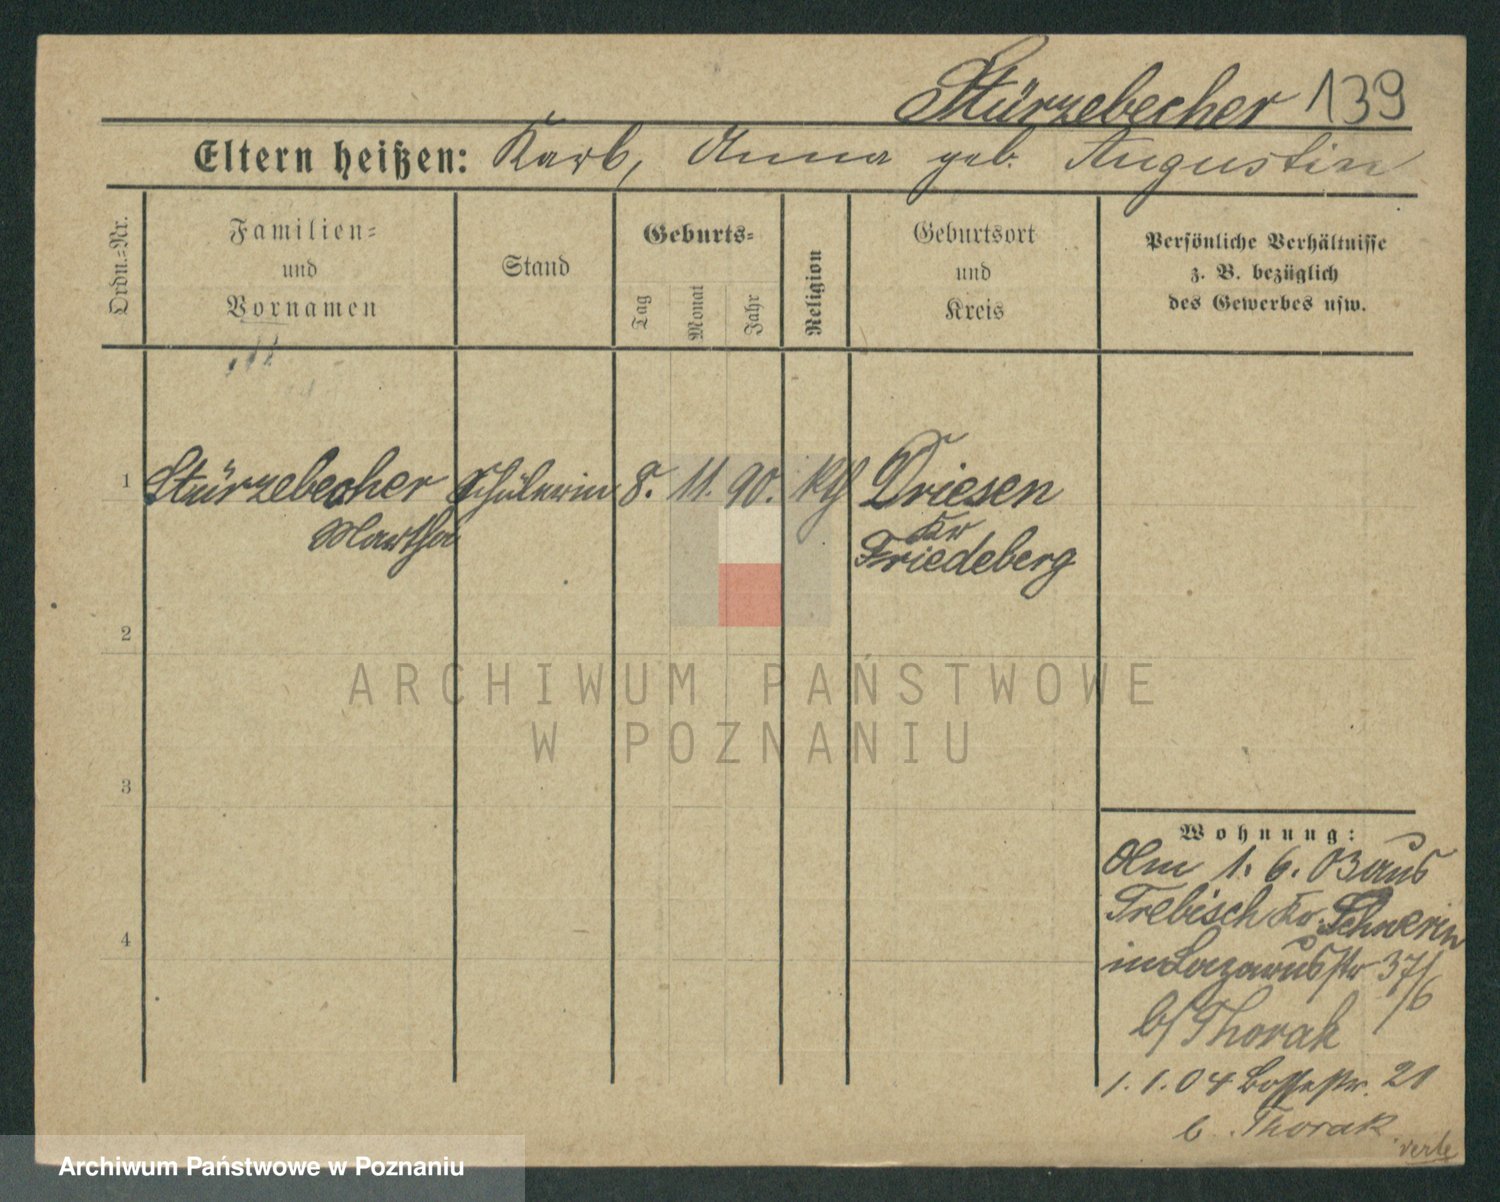 Stürzebecher 139
Eltern heißen: Karl, Anna geb. Augustin
Ordn.-Nr.
Familien-
und
Vornamen
Stand
Geburts-
Tag
Monat
Jahr
Religion
Geburtsort
und
Kreis
Persönliche Verhältnisse
z. B. bezüglich
des Gewerbes usw.
1 Stürzebecher Schülerin 8. 11. 90. Driesen
Martha
Kr
Friedeberg
2
3
4
Wohnung:
1. 6. 03 aus
Trebisch Kr. Schwerin
in Lazarusstr 37/
6
b/ Thorak
1. 1. 04 Bossestr. 21
b. Thorak
verte
ARCHIWUM PAŃSTWOWE
W POZNANIU
Archiwum Państwowe w Poznaniu